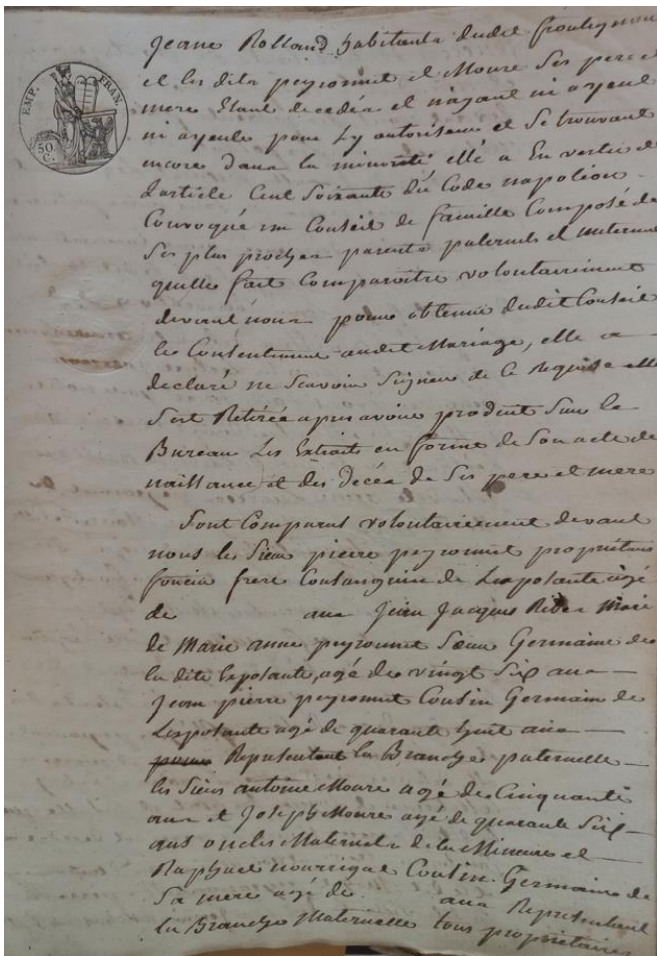 EMP. FRAN.
50
C.
Jeane Rolland habitants dudit
et les dits peyronnet et Moure Ses pere et
mere Etant decedés et n'ayant ni ayeul
ni ayeule pour Ly autoriser et Se trouvant
encore Dans la minorité elle a En vertu de
L'article Cent Soixante du Code napoléon
Convoqué un Conseil de famille Composé de
Ses plus proches parents paternels et maternels
quelle fait Comparoitre volontairement
devant nous pour obtenir dudit Conseil
le Consentement audit Mariage, elle a
declaré ne Scavoir Signer de Ce Requise elle
Sest Retirée apres avoir produit Sur le
Bureau Les Extraits en forme de Son acte de
naissance et des Décés de Ses pere et mere
Sont Comparus volontairement devant
nous les Sieurs pierre peyronnet propriétaire
foncier frere Consanguin de Lexposante agé
de ans Jean Jacques Mari
de Marie anne peyronnet Sœur Germaine de
la dite Exposante, agé de vingt Six ans
Jean pierre peyronnet Cousin Germain de
Lexposante agé de quarante huit ans
Representant la Branche paternelle
les Sieurs antoine Moure agé de Cinquante
ans et Joseph Moure agé de quarante Six
ans oncles Maternels de la Mineure et
Raphael Cousin Germain de
Sa mere agé de ans Representant
la Branche Maternelle tous proprietaires